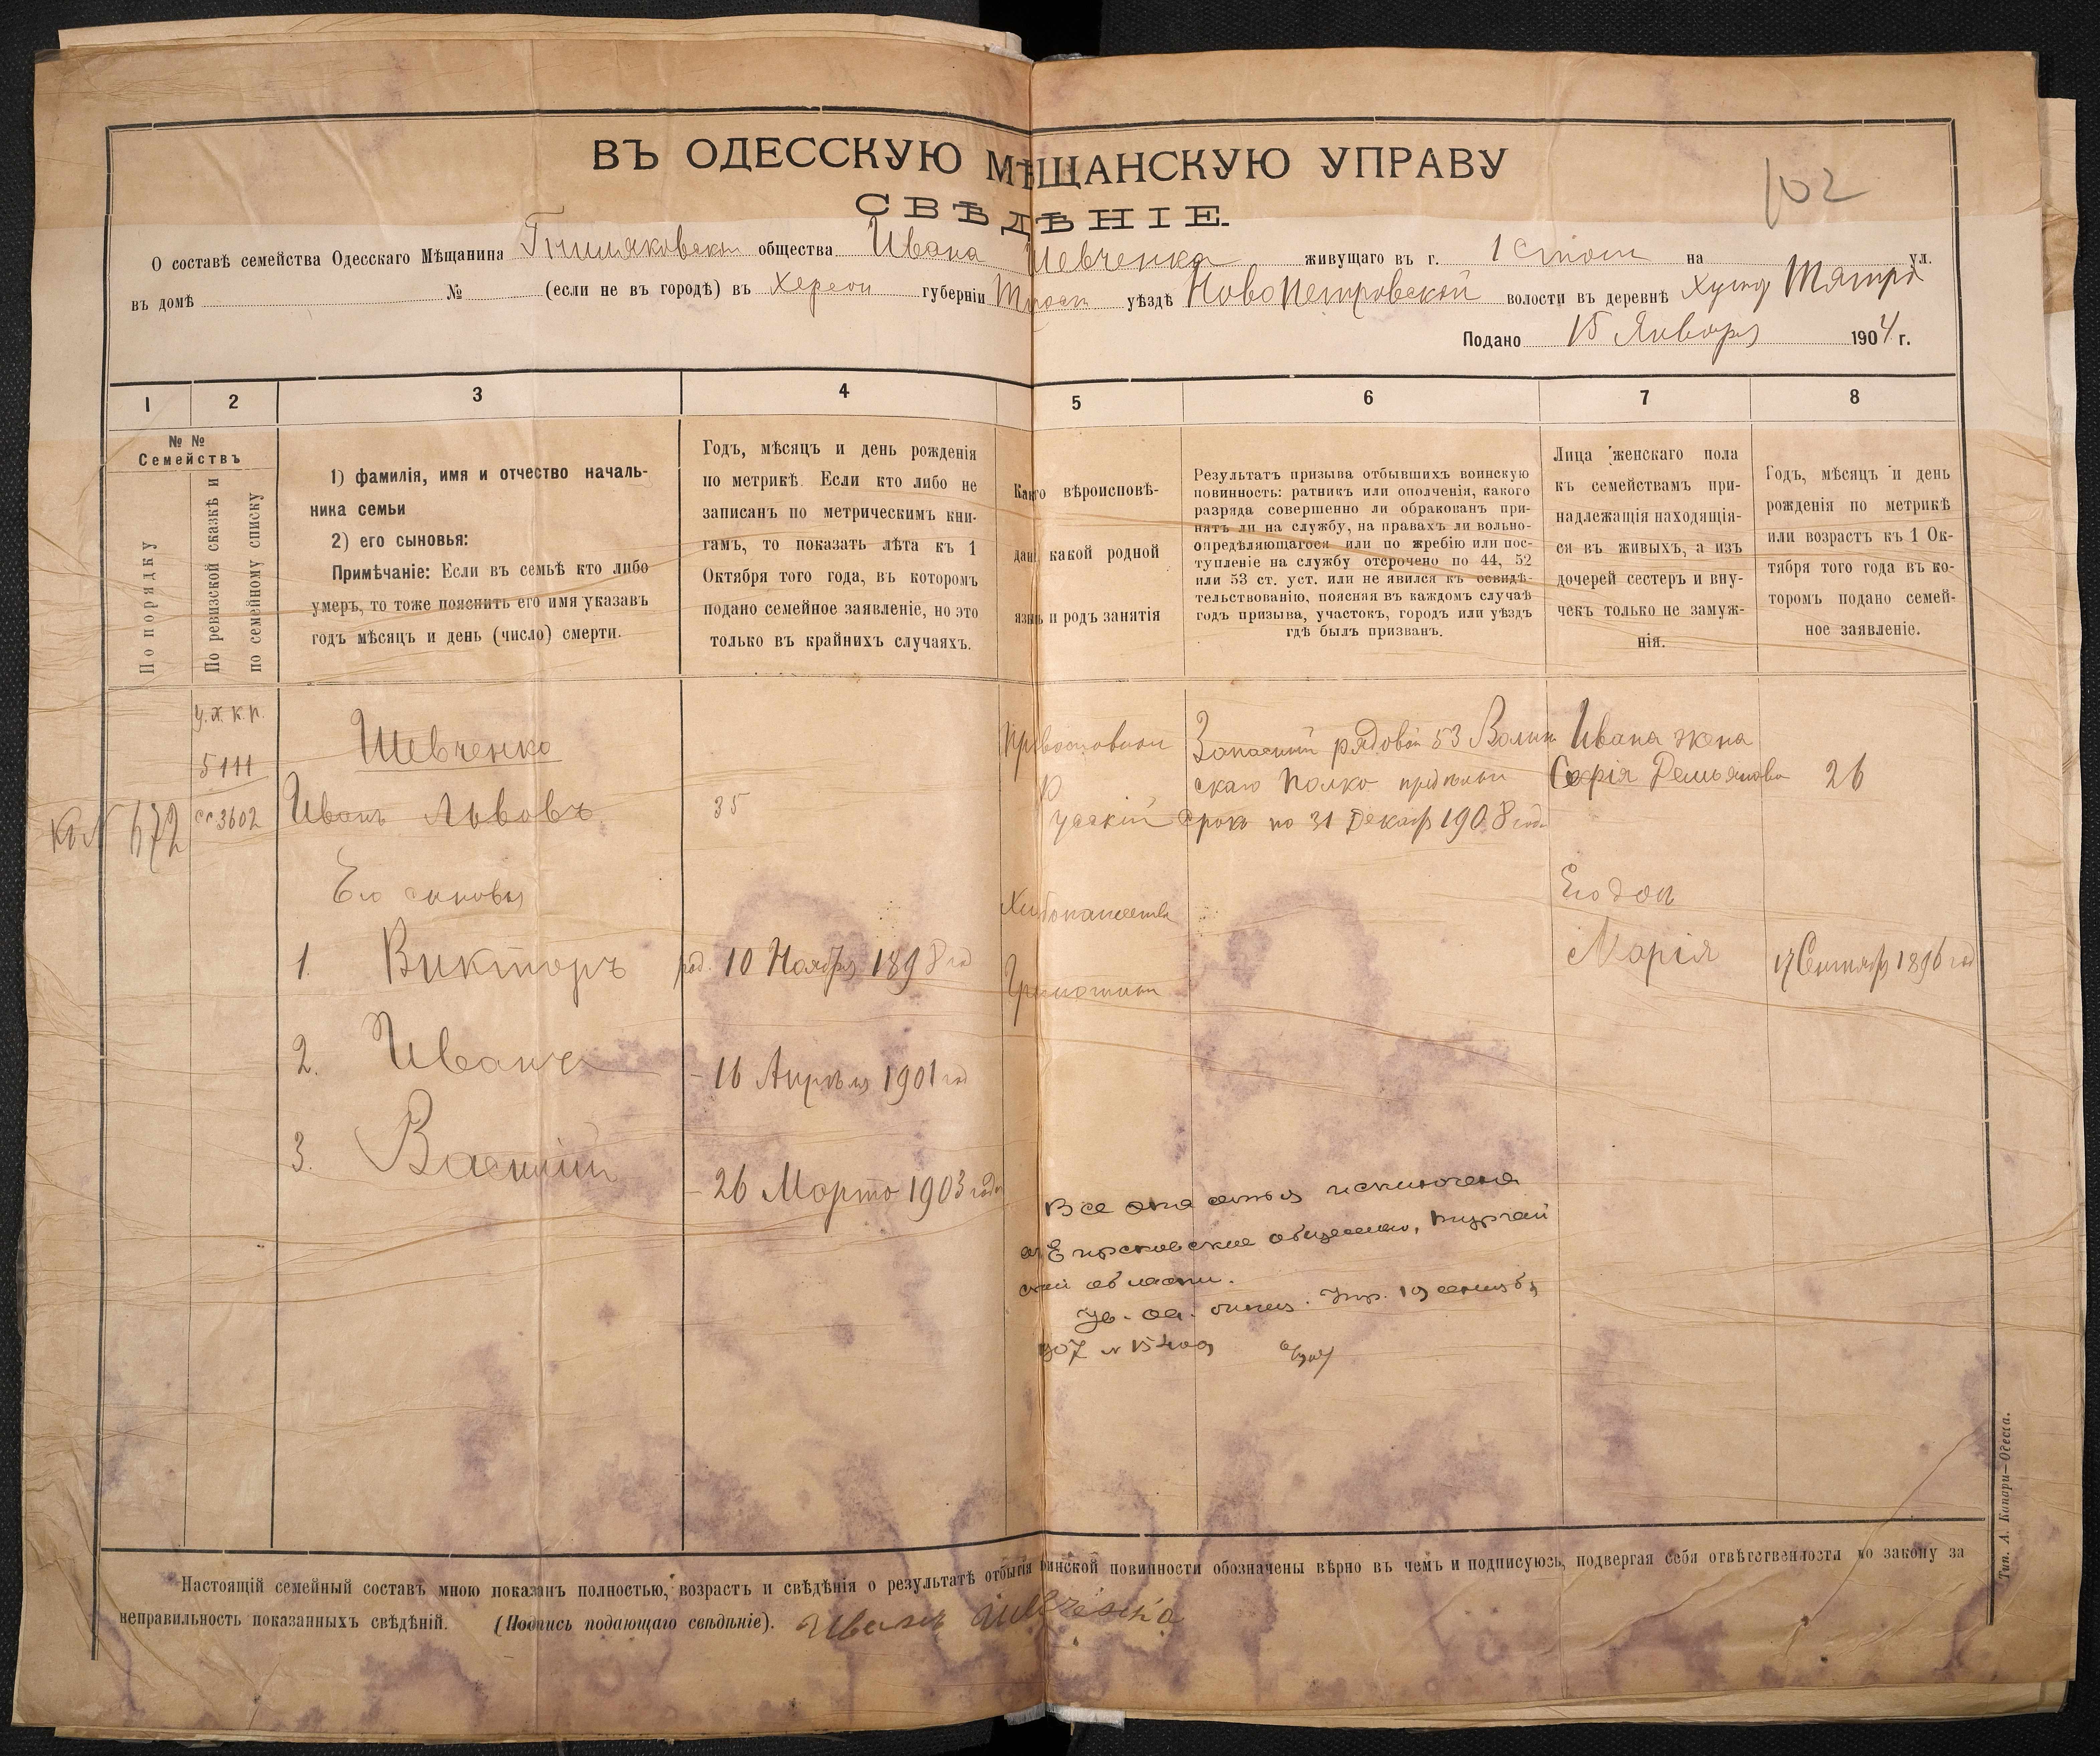 ВЪ ОДЕССКУЮ МѢЩАНСКУЮ УПРАВУ
102
СВѢДѢНІЕ.
О составѣ семейства Одесскаго Мѣщанина общества Ивана Шевченка живущаго въ г. на ул.
въ домѣ № (если не въ городѣ) въ Херсон губерніи уѣздѣ НовоПетровской волости въ деревнѣ
Подано 15 Января 1904 г.
1 2 3 4 5 6 7 8
№ №
Семействъ
По порядку
По ревизской сказкѣ и
по семейному списку
1) фамилія, имя и отчество началь-
ника семьи
2) его сыновья:
Примѣчаніе: Если въ семьѣ кто либо
умеръ, то тоже пояснить его имя указавъ
годъ мѣсяцъ и день (число) смерти.
Годъ, мѣсяцъ и день рожденія
по метрикѣ. Если кто либо не
записанъ по метрическимъ кни-
гамъ, то показать лѣта къ 1
Октября того года, въ которомъ
подано семейное заявленіе, но это
только въ крайнихъ случаяхъ.
Какого вѣроисповѣ-
данія, какой родной
языкъ и родъ занятія
Результатъ призыва отбывшихъ воинскую
повинность: ратникъ или ополченія, какого
разряда совершенно ли обракованъ при-
нятъ ли на службу, на правахъ ли вольно-
опредѣляющагося или по жребію или пос-
тупленіе на службу отсрочено по 44, 52
или 53 ст. уст. или не явился къ освидѣ-
тельствованію, поясняя въ каждомъ случаѣ
годъ призыва, участокъ, городъ или уѣздъ
гдѣ былъ призванъ.
Лица женскаго пола
къ семействамъ при-
надлежащія находящія-
ся въ живыхъ, а изъ
дочерей сестеръ и вну-
чекъ только не замуж-
нія.
Годъ, мѣсяцъ и день
рожденія по метрикѣ
или возрастъ къ 1 Ок-
тября того года въ ко-
торомъ подано семей-
ное заявленіе.
672
5111
3602
Шевченко
Иванъ Львовъ
35
Его сыновья
1. Викторъ
род. 10 Ноября 1898 год
2. Иванъ
- 16 Апрѣля 1901 год
3. Василій
- 26 Марта 1903 года
Православный
Русскій
Хлебопашество
Грамотный
Запасный рядовой 53 Волын
скаго Полка
срокъ по 31 Декаб 1908 года
Ивана жена
Софія Демьянова
26
Его доч
Марія
17 Сентября 1896 год
Вся эта семья исключена
общество, Тургай
ской области.
907 №
Настоящій семейный составъ мною показанъ полностью, возрастъ и свѣдѣнія о результатѣ отбытія воинской повинности обозначены вѣрно въ чемъ и подписуюсь, подвергая себя отвѣтственности по закону за
неправильность показанныхъ свѣдѣній. (Подпись подающаго свѣдѣніе). Иванъ Шевченко
Тип. А. Кипари—Одесса.